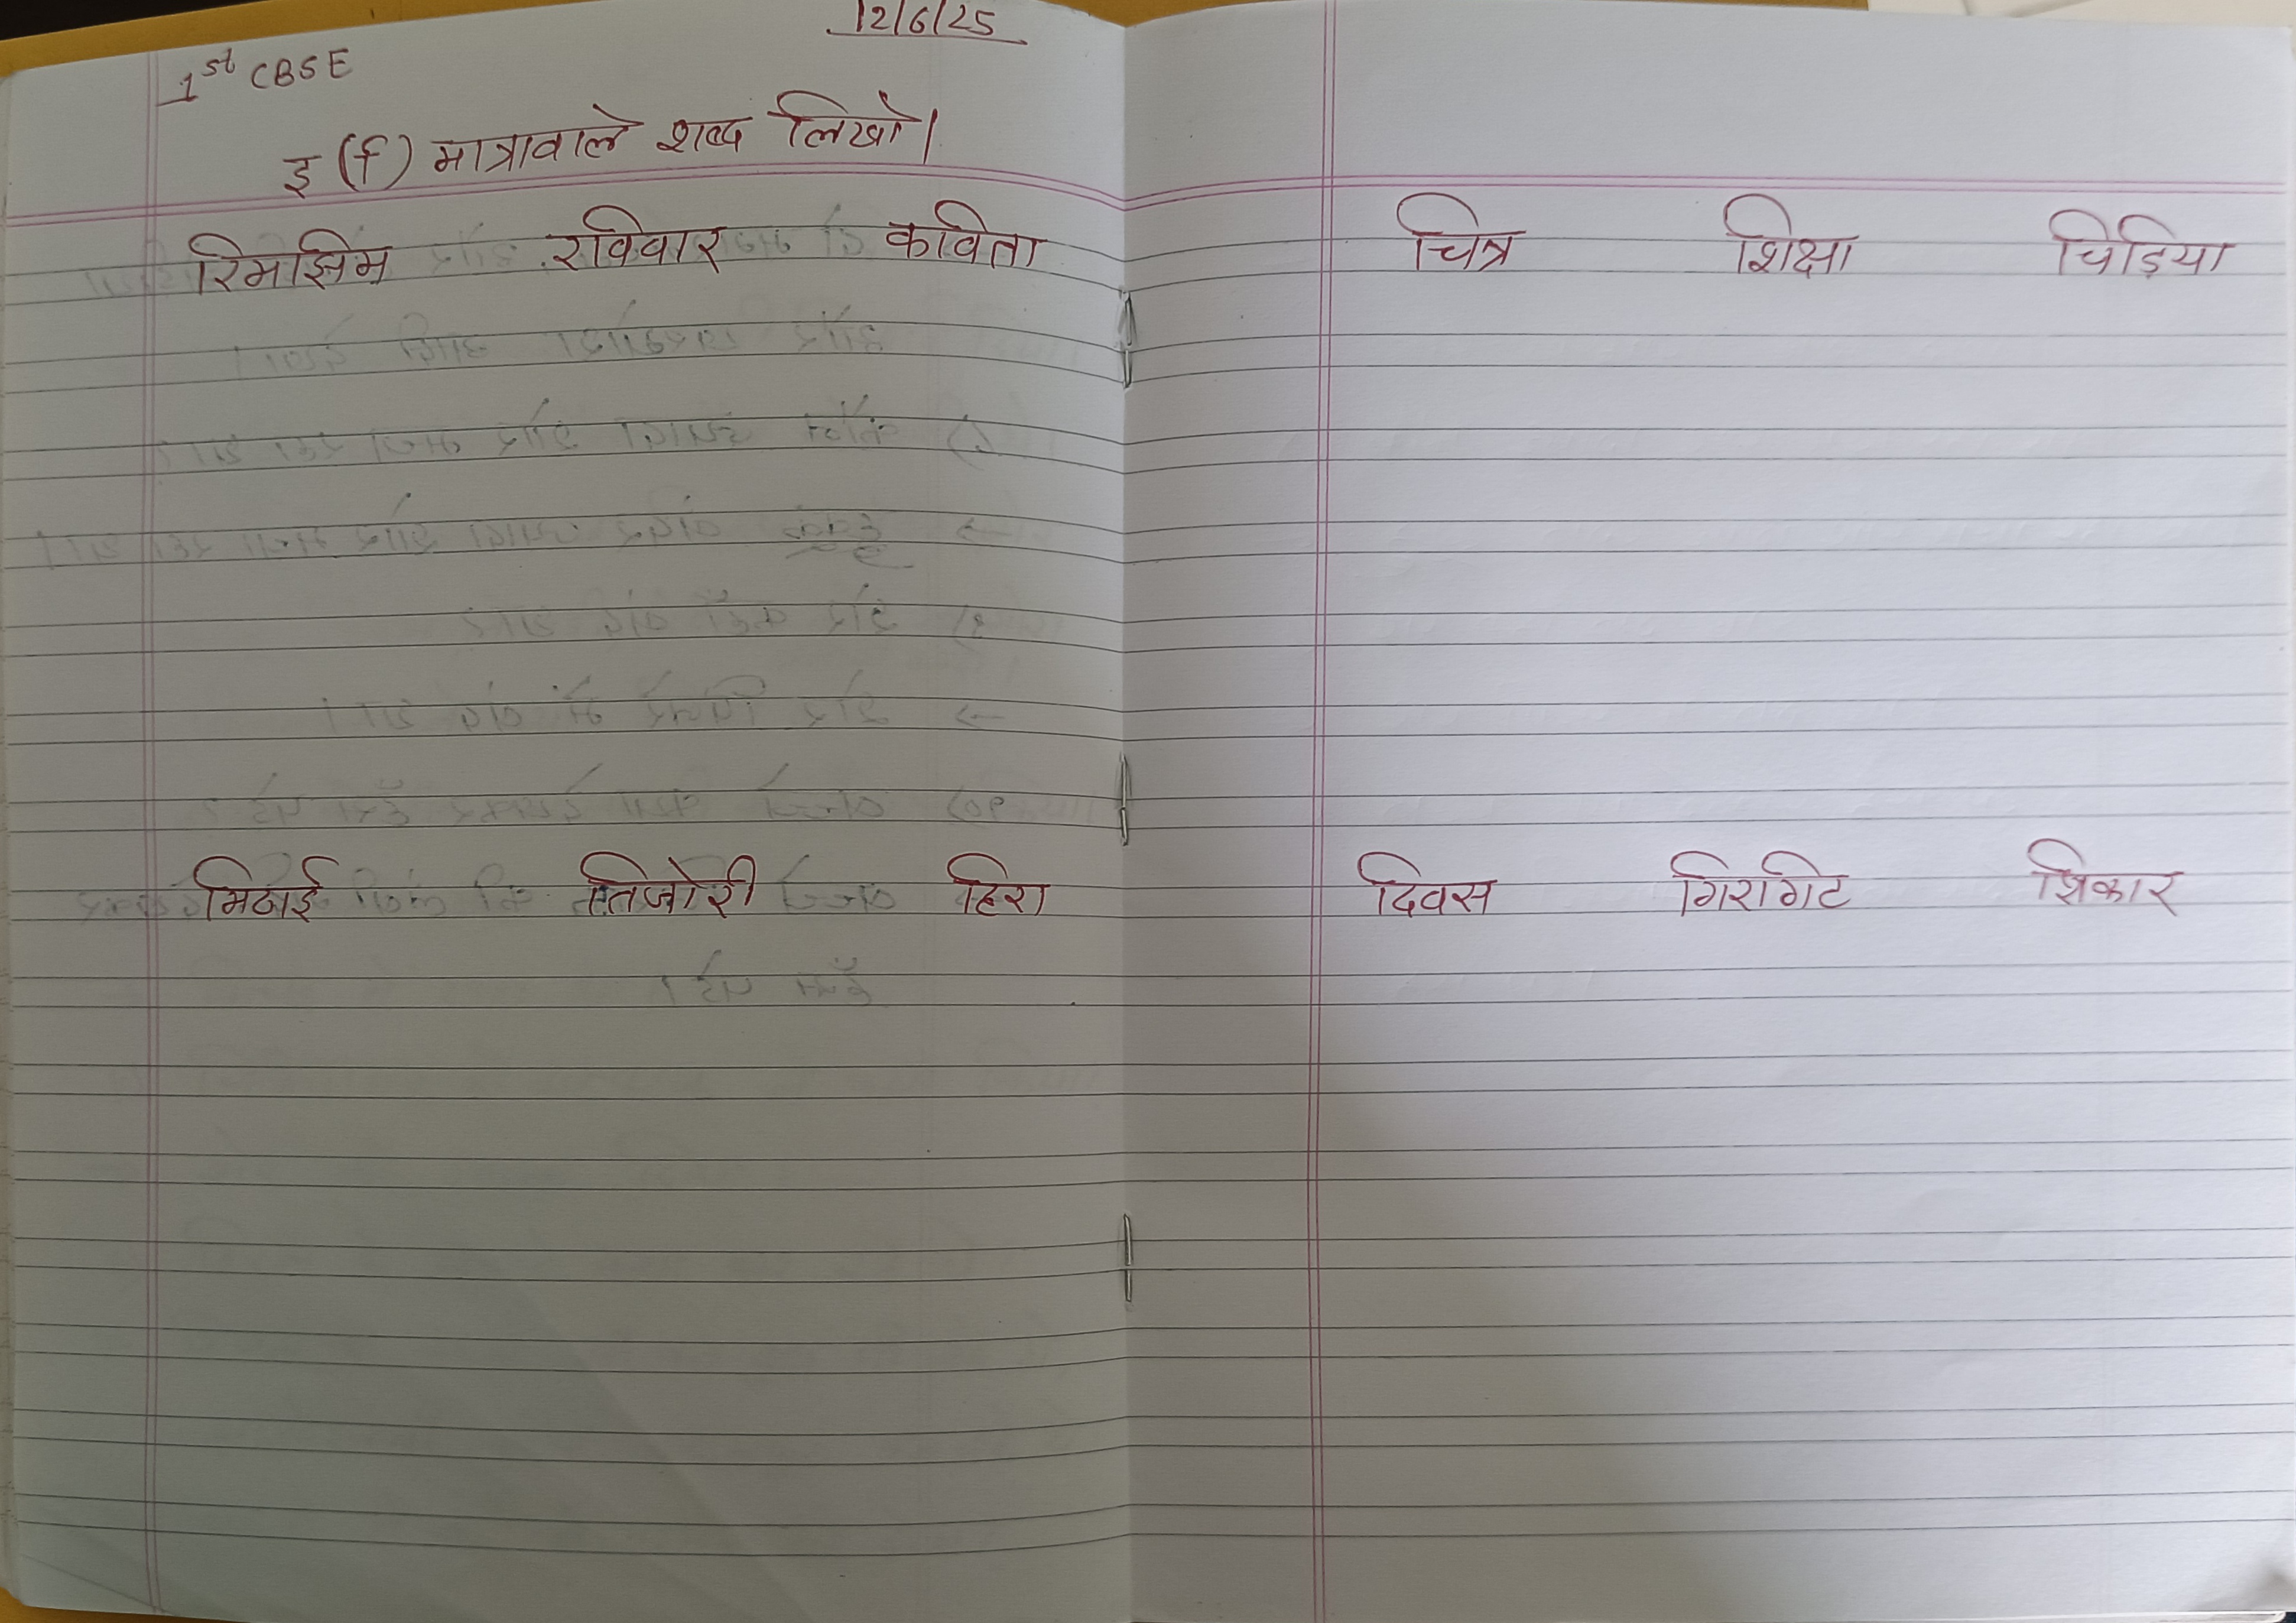 12/6/25
1st CBSE
इ (ि) मात्रावाले शब्द लिखो।
रिमझिम रविवार कविता
मिठाई तिजोरी हिरा
चित्र शिक्षा चिड़िया
दिवस गिरगिट शिकार